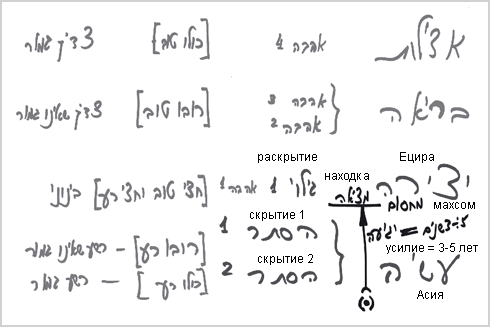 אצילות אהבה 4 [כולו טוב] צדיק גמור
בריאה אהבה 3 [רובו טוב] צדיק שאינו גמור
אהבה 2
Ецира находка раскрытие
יצירה מציאה גילוי 1 אהבה 1 [חצי טוב וחצי רע] בינוני
מחסום махсом
יגיעה = 3-5 שנים
скрытие 1
הסתר 1 [רובו רע] – רשע שאינו גמור
усилие = 3-5 лет
скрытие 2
עשיה הסתר 2 [כולו רע] – רשע גמור
Асия